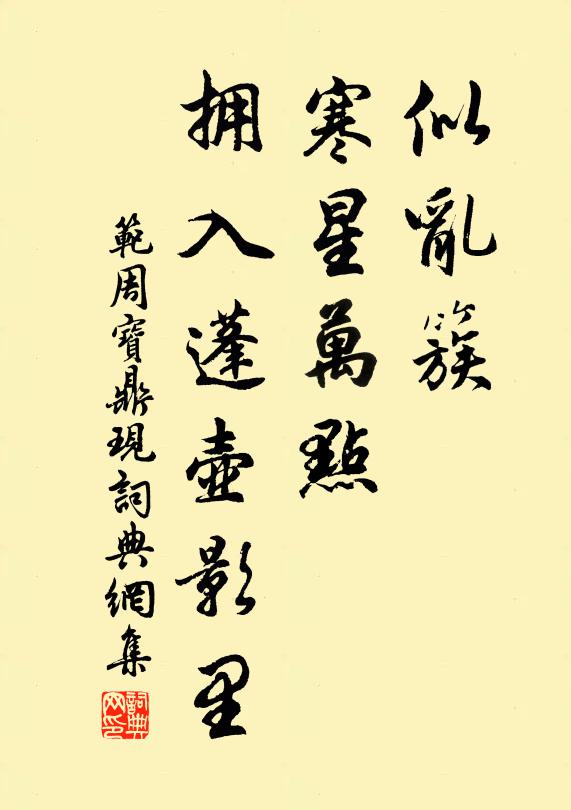 似亂簇
寒星萬點
拥入蓬壺影里
範周寶鼎現詞典網集
詞典网印